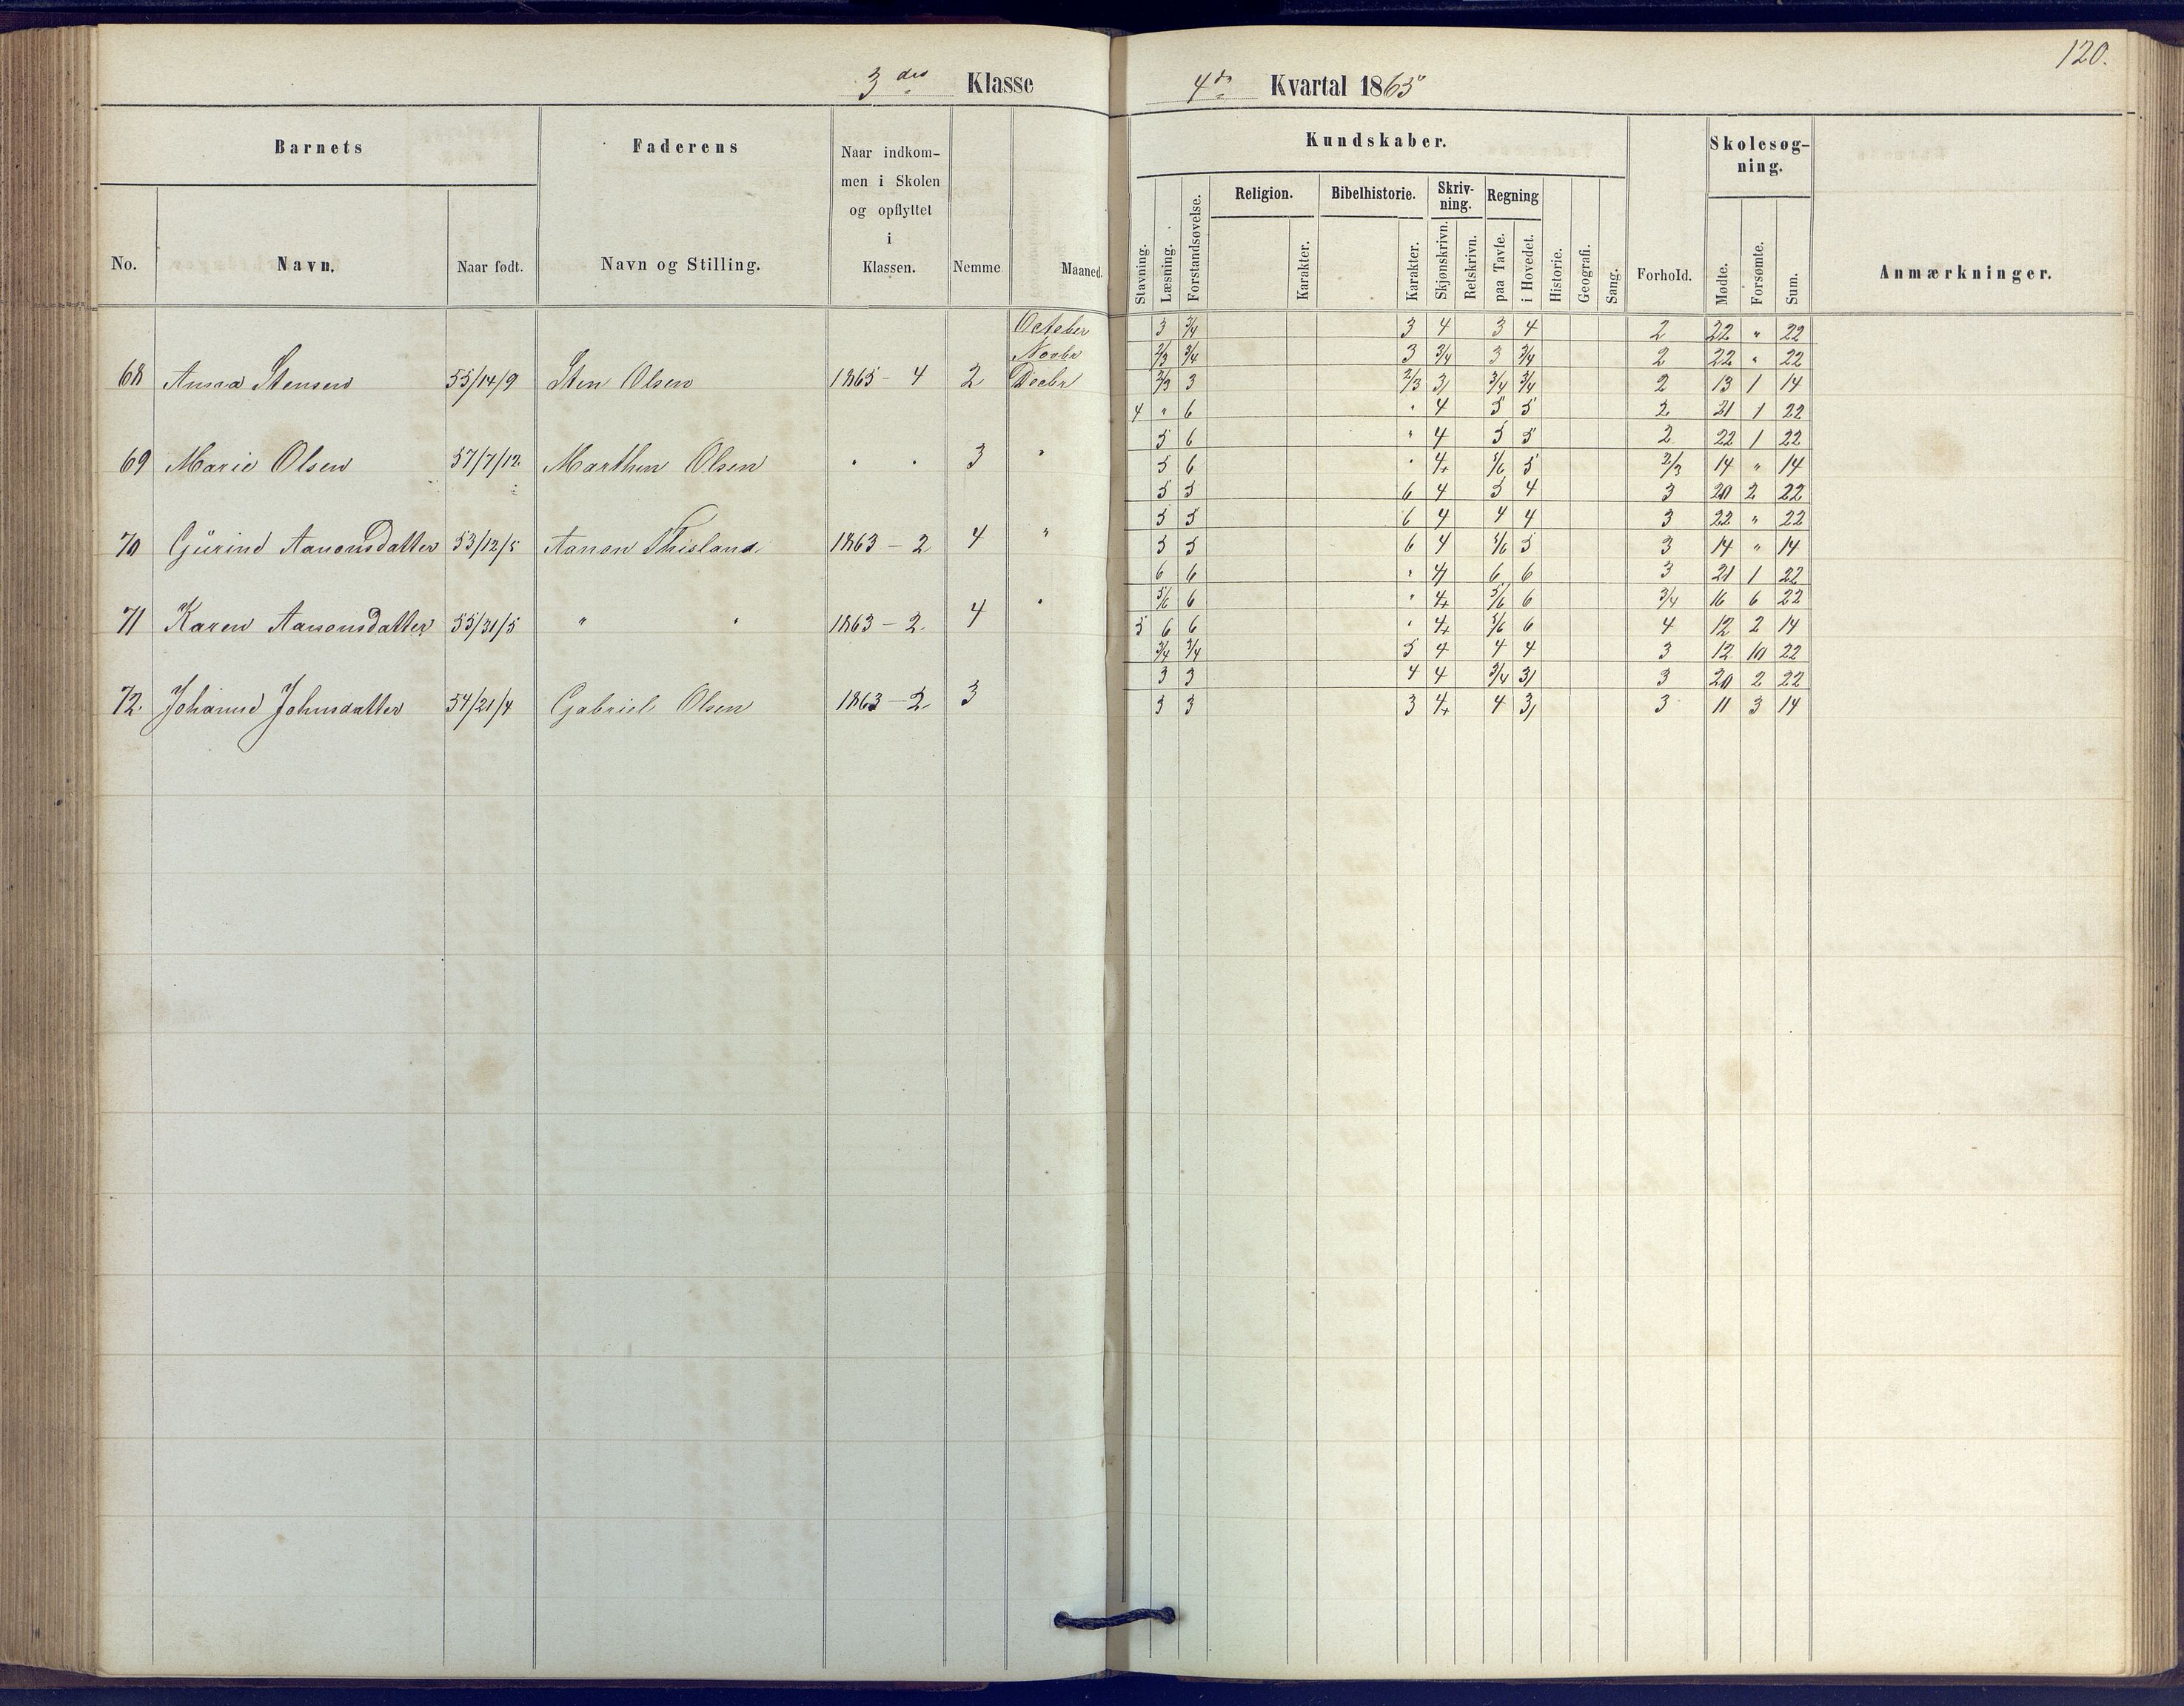 120.
3 die Klasse
4de Kvartal 1865
Barnets
Faderens
Naar indkom-
men i Skolen
og opflyttet
i
Klassen.
No.
Navn.
Naar født.
Navn og Stilling.
Nemme
Maaned.
Kundskaber.
Skolesøg-
ning.
Religion.
Bibelhistorie.
Skriv-
ning.
Regning
Stavning.
Læsning.
Forstandsøvelse.
Karakter.
Karakter.
Skjønskrivn.
Retskrivn.
paa Tavle.
i Hovedet.
Historie.
Geografi.
Sang.
Forhold.
Mødte.
Forsømte.
Sum.
Anmærkninger.
October 3 3/4 3 4 3 4 2 22 " 22
Novbr 2/3 3/4 3 3/4 3 3/4 2 22 " 22
68 Anna Stensen 55/14/9 Sten Olsen 1865 - 4 2 Decbr 2/3 3 2/3 3/ 3/4 3/4 2 13 1 14
4 " 6 " 4 5 5 2 21 1 22
5 6 " 4 5 5 2 22 1 22
69 Marie Olsen 57/7/12 Marthen Olsen " " 3 " 5 6 " 4+ 5/6 5 2/3 14 " 14
5 5 6 4 5 4 3 20 2 22
5 5 6 4 4 4 3 22 " 22
70 Gürine Aanonsdatter 53/12/5 Aanon Thisland 1863 - 2 4 " 5 5 6 4 5/6 5 3 14 " 14
6 6 " 4/ 6 6 3 21 1 22
5/6 6 " 4+ 5/6 6 3/4 16 6 22
71 Karen Aanonsdatter 55/31/5 " " 1863 - 2. 4 " 5 6 6 " 4+ 5/6 6 4 12 2 14
3/4 3/4 5 4 4 4 3 12 10 22
3 3 4 4 3/4 3/ 3 20 2 22
72. Johanne Johnsdatter 54/21/4 Gabriel Olsen 1863 - 2 3 3 3 3 4+ 4 3/ 3 11 3 14